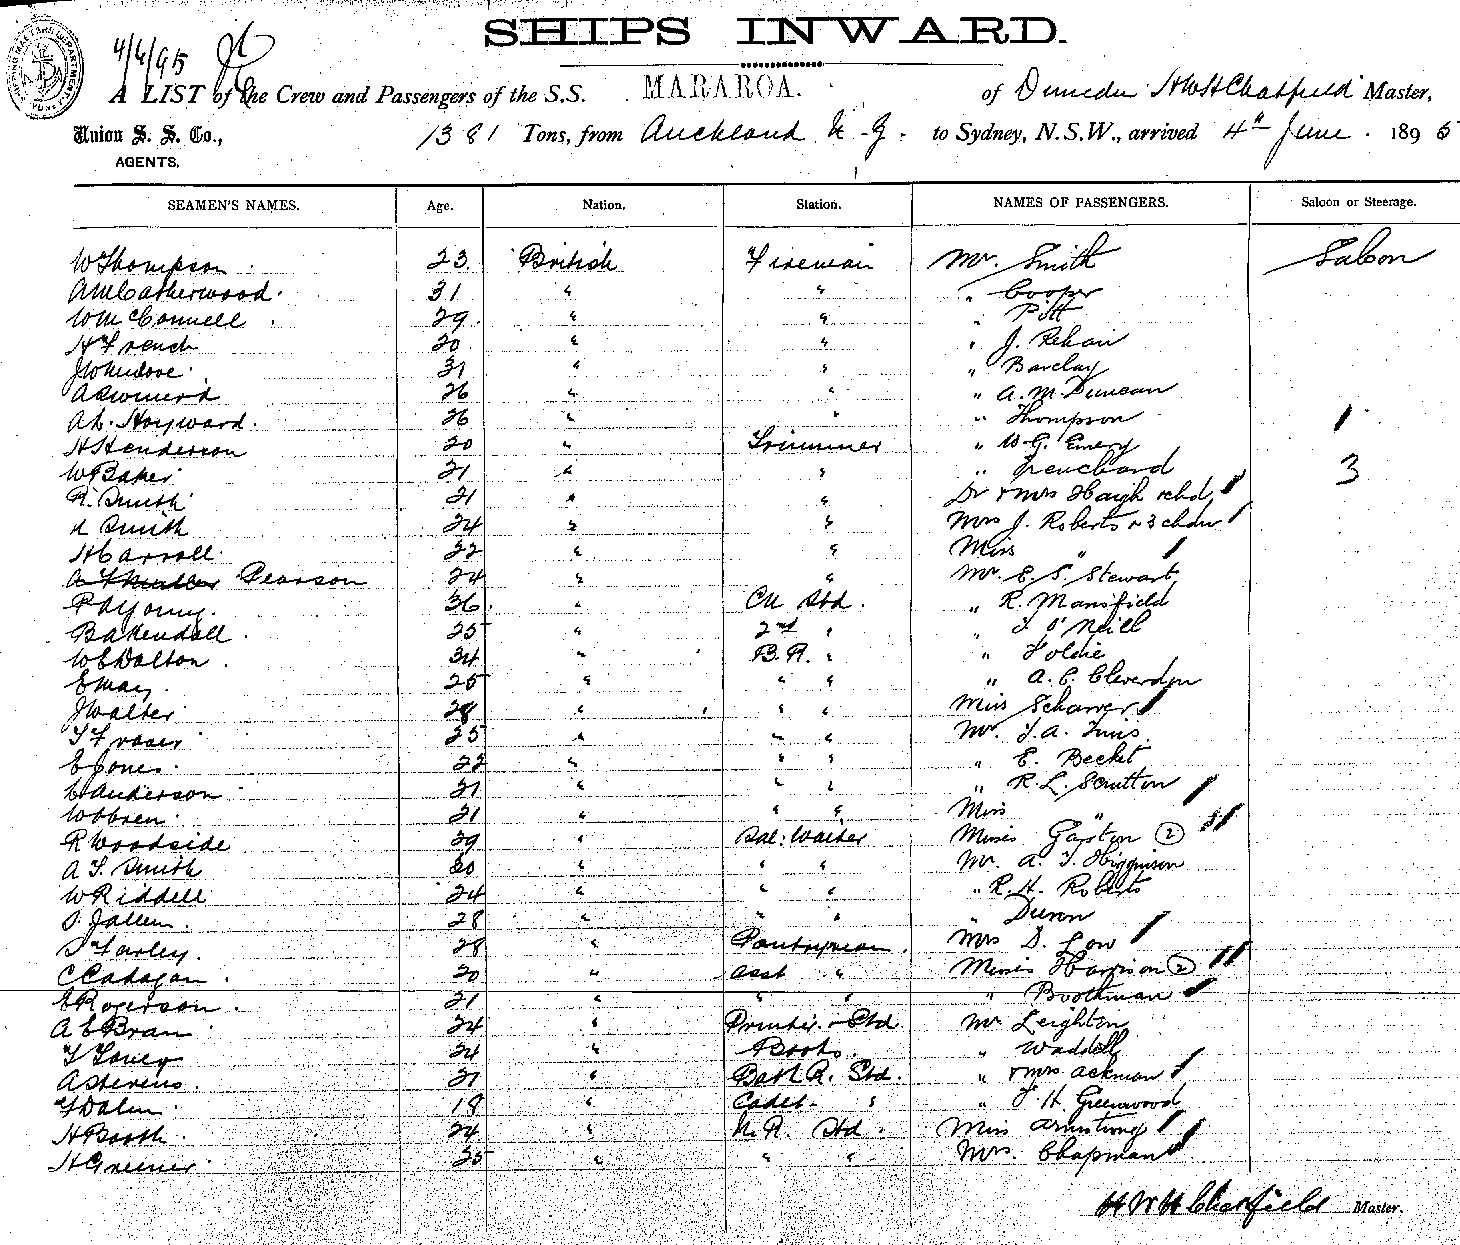 SHIPS INWARD.
4/6/95
A LIST of the Crew and Passengers of the S.S. MARAROA. of Dunedin HWHChatfield Master,
Union S. S. Co., 1381 Tons, from Auckland N-Z. to Sydney, N.S.W., arrived 4th June. 1895
AGENTS.
SEAMEN'S NAMES. Age. Nation. Station. NAMES OF PASSENGERS. Saloon or Steerage.
W Thompson 23 British Fireman Mr. Smith Saloon
A McCatherwood. 31 " " " Cooper
W McConnell 29 " " " Pitt
H French 20 " " " J. Rehan
31 " " " Barclay
26 " " " A. M. Duncan
A L. Hayward. 26 " " " Thompson 1
H Henderson 20 " Trimmer " W. G. Emery
W Baker 21 " " " Trenchard 3
R. Smith 21 " " Dr & Mrs Haigh & chd,
Smith 24 " " Mrs J. Roberts & 3 chdn
H Carroll 22 " " Miss "
Pearson 24 " " Mr. E. S. Stewart
Young. 36 " Ch Std. " R. Mansfield
B A Kendall 25 " 2nd " " O'Neill
W E Dalton 34 " B.R. " "
E May 25 " " " " A. C. Cleverdon
J Walter 28 " " " Miss
T Fraser 25 " " " Mr.
E Jones 22 " " " " E. Becket
C Anderson 21 " " " " R. L. Scrutton
W Obren 21 " " " Miss "
R Woodside 29 " Sal. Waiter Misses (2)
A T. Smith 20 " " " Mr. A. T. Higginson
W Riddell 24 " " " " R. H. Roberts
28 " " " " Dunn
Farley. 28 " Pantryman. Mrs D. Low
C Cadogan 20 " Asst " Misses Harrison (2)
E Rogerson 21 " " " " Boothman
A E Bran 24 " Printer & Std Mr Leighton
24 " Boots. " Waddell
A Stevens. 21 " Bath R. Std. " & Mrs Ackman
18 " Cadet. " " H. Greenwood
H Booth. 24 " Std. Miss Armstrong
H Greener 25 " " " Mrs. Chapman
HWHChatfield Master.